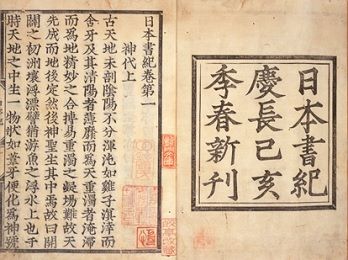 日本書紀
慶長己亥
季春新刊
日本書紀卷第一
神代上
古天地未剖陰陽不分渾沌如雞子溟涬而
含牙及其清陽者薄靡而為天重濁者淹滯
而為地精妙之合搏易重濁之凝場難故天
先成而地後定然後神聖生其中焉故曰開
闢之初洲壤浮漂譬猶游魚之浮水上也于
時天地之中生一物狀如葦牙便化為神號